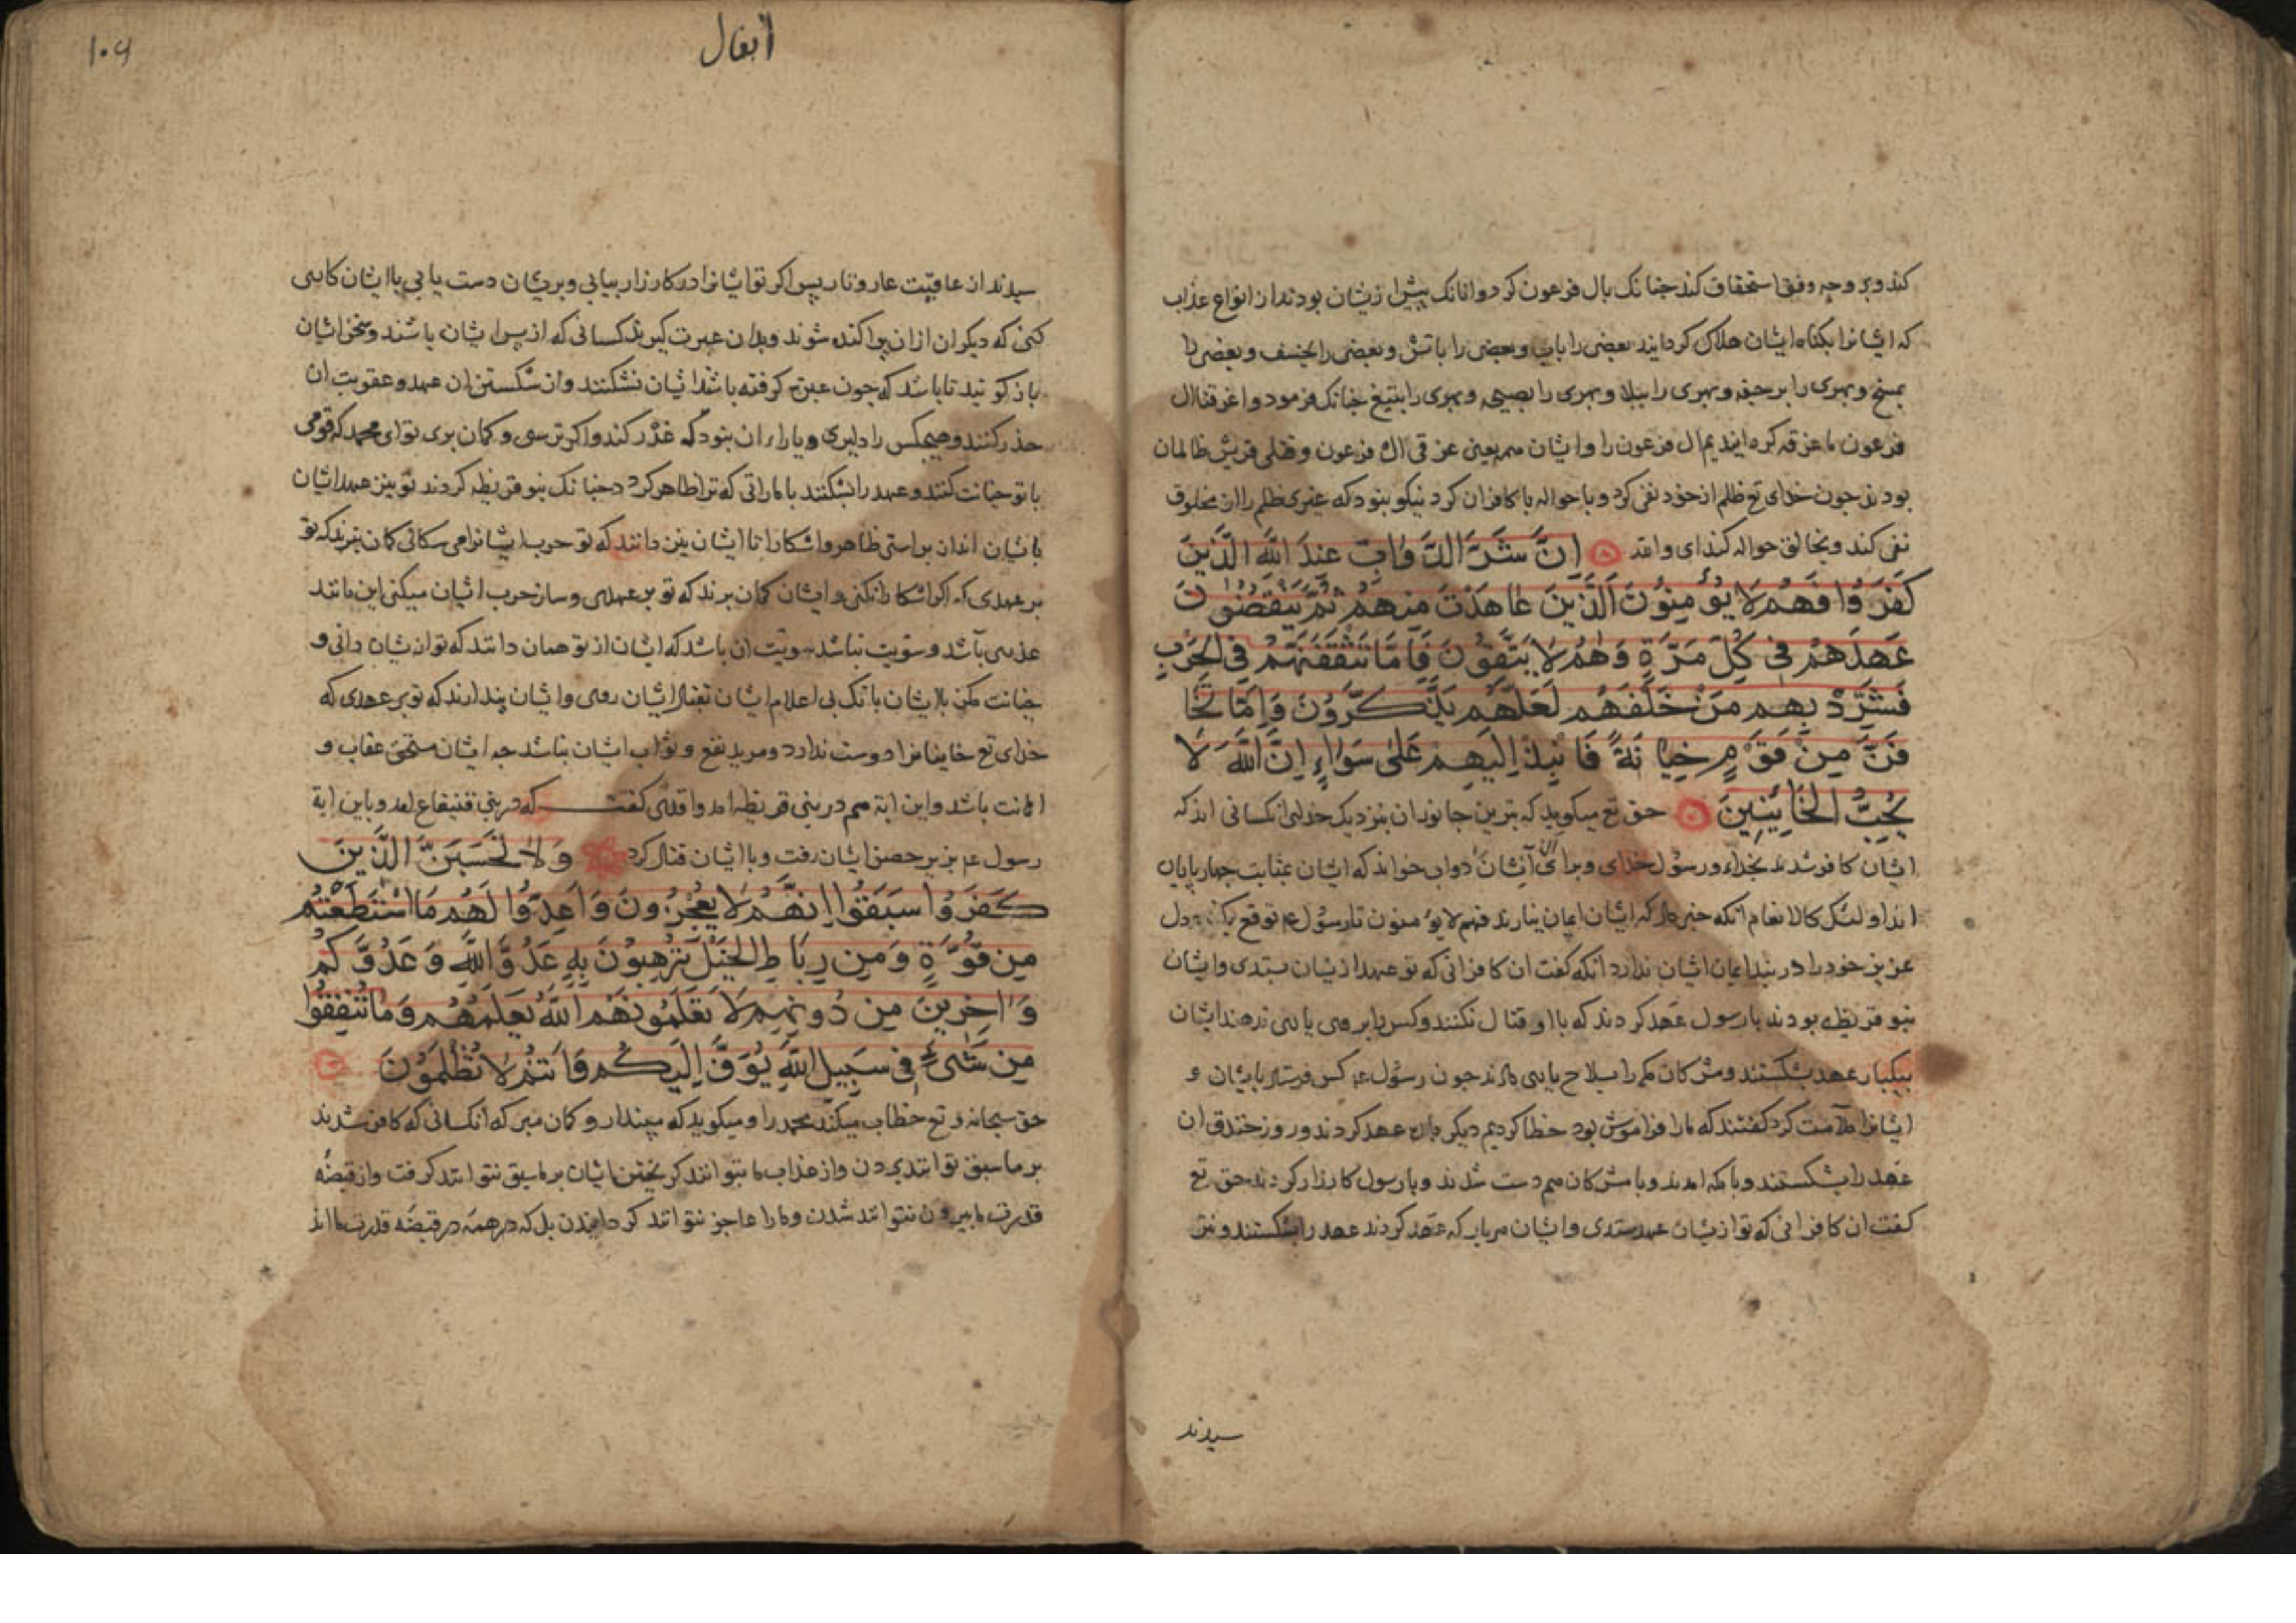 کند و بر وجه وفق استحقاق کند جنانک بال فرعون کرد و انانک بیش از یشان بودند از انواع عذاب
که ایشانرا بکناه ایشان هلاک کردایند بعضی را باب و بعضی را باتش و بعضی را بخسف و بعضی را
بمسخ و بهری را برجفه و بهری را ببلا و بهری را بصیحه و بهری را بتیغ جنانک فرمود و اغرقنا ال
فرعون ما غرقه کردایندیم ال فرعون را و ایشان هم یعنی غرقی ال فرعون و قتلی قریش ظالمان
بودند جون خدای تع ظلم از خود نفی کرد و با حواله با کافران کرد نیکو بنود که عنری ظلم را از مخلوق
نفی کند و بخالق حواله کند ای والله ان شر الدواب عند الله الذین
کفروا فهم لا یؤمنون الذین عاهدت منهم ثم ینقضون
عهدهم فی کل مرة وهم لا یتقون فاما تثقفنهم فی الحرب
فشرد بهم من خلفهم لعلهم یذکرون واما تخا
فن من قوم خیانة فانبذ الیهم علی سواء ان الله لا
یحب الخائنین حق تع میکوید که بترین جانوران بنزدیک خدای انکسانی اند که
ایشان کافر شدند بخدا و رسول خدای و برای آن ایشان دواب خواند که ایشان بمثابت جهارپایان
اند اولئک کالانعام انکه خبر داد که ایشان ایمان نیارند فهم لا یؤمنون تا رسول ع توقع نکند و دل
عزیز خود را در بند ایمان ایشان ندارد انکه کفت ان کافرانی که تو عهد از یشان بستدی و ایشان
بنو قریظه بودند با رسول عهد کردند که با او قتال نکنند و کس را بر وی یاری ندهند ایشان
بیکبار عهد بشکستند و مشرکان مکه را بسلاح یاری دادند جون رسول ع کس فرستاد بایشان و
ایشانرا ملامت کرد کفتند که ما را فراموش بود خطا کردیم دیکر باره عهد کردند و روز خندق ان
عهد را بشکستند و با مکه امدند و با مشرکان هم دست شدند و با رسول کارزار کردند حق تع
کفت ان کافرانی که تو از یشان عهد ستدی و ایشان هر بار که عهد کردند عهد را بشکستند و نتر
سیدند
انفال
۱۰۹
سیدند از عاقبت عار و نار پس اکر تو ایشانرا در کارزار بیابی و بریشان دست یابی با ایشان کاری
کنی که دیکران از ان پراکنده شوند و بدان عبرت کیرند کسانی که از پس ایشان باشند و سخن ایشان
بازکوئید تا باشد که جون عبرت کرفته باشند ایشان نشکنند و ان شکستن ان عهد و عقوبت ان
حذر کنند و هیجکس را دلیری و یارا ان بنود که غدر کند و اکر ترسی و کمان بری تو ای محمد که قومی
با تو خیانت کنند و عهد را بشکنند با ماراتی که ترا ظاهر کردد جنانک بنو قریظه کردند تو نیز عهد ایشان
با یشان انداز براستی ظاهر و اشکارا تا ایشان نیز دانند که تو حرب ایشانرا می سکالی کمان نبرند که تو
بر عهدی که اکر اشکارا نکنی و ایشان کمان برند که تو بر عهدی و ساز حرب ایشان میکنی این مانند
غدری باشد و سویت نباشد سویت ان باشد که ایشان از تو همان دانند که تو از یشان دانی و
خیانت مکن با ایشان بانک بی اعلام ایشان بقتال ایشان روی و ایشان پندارند که تو بر عهدی که
خدای تع خاینانرا دوست ندارد و مرید نفع و ثواب ایشان نباشد جه ایشان مستحق عقاب و
اهانت باشد و این ایة هم در بنی قریظه امد واقدی کفت که در بنی قنیقاع امد و باین ایة
رسول ع بزیر حصن ایشان رفت و با ایشان قتال کرد ولا تحسبن الذین
کفروا سبقوا انهم لا یعجزون واعدوا لهم ما استطعتم
من قوة ومن رباط الخیل ترهبون به عدو الله وعدوکم
واخرین من دونهم لا تعلمونهم الله یعلمهم وما تنفقوا
من شیء فی سبیل الله یوف الیکم وانتم لا تظلمون
حق سبحانه و تع خطاب میکند محمد را و میکوید که مپندار و کمان مبر که انکسانی که کافر شدند
بر ما سبق توانند بردن و از عذاب ما بتوانند کریختن ایشان بر ما سبق نتوانند کرفت و از قبضه
قدرت ما بیرون نتوانند شدن و ما را عاجز نتوانند کردایندن بل که در همه در قبضه قدرت ما اند